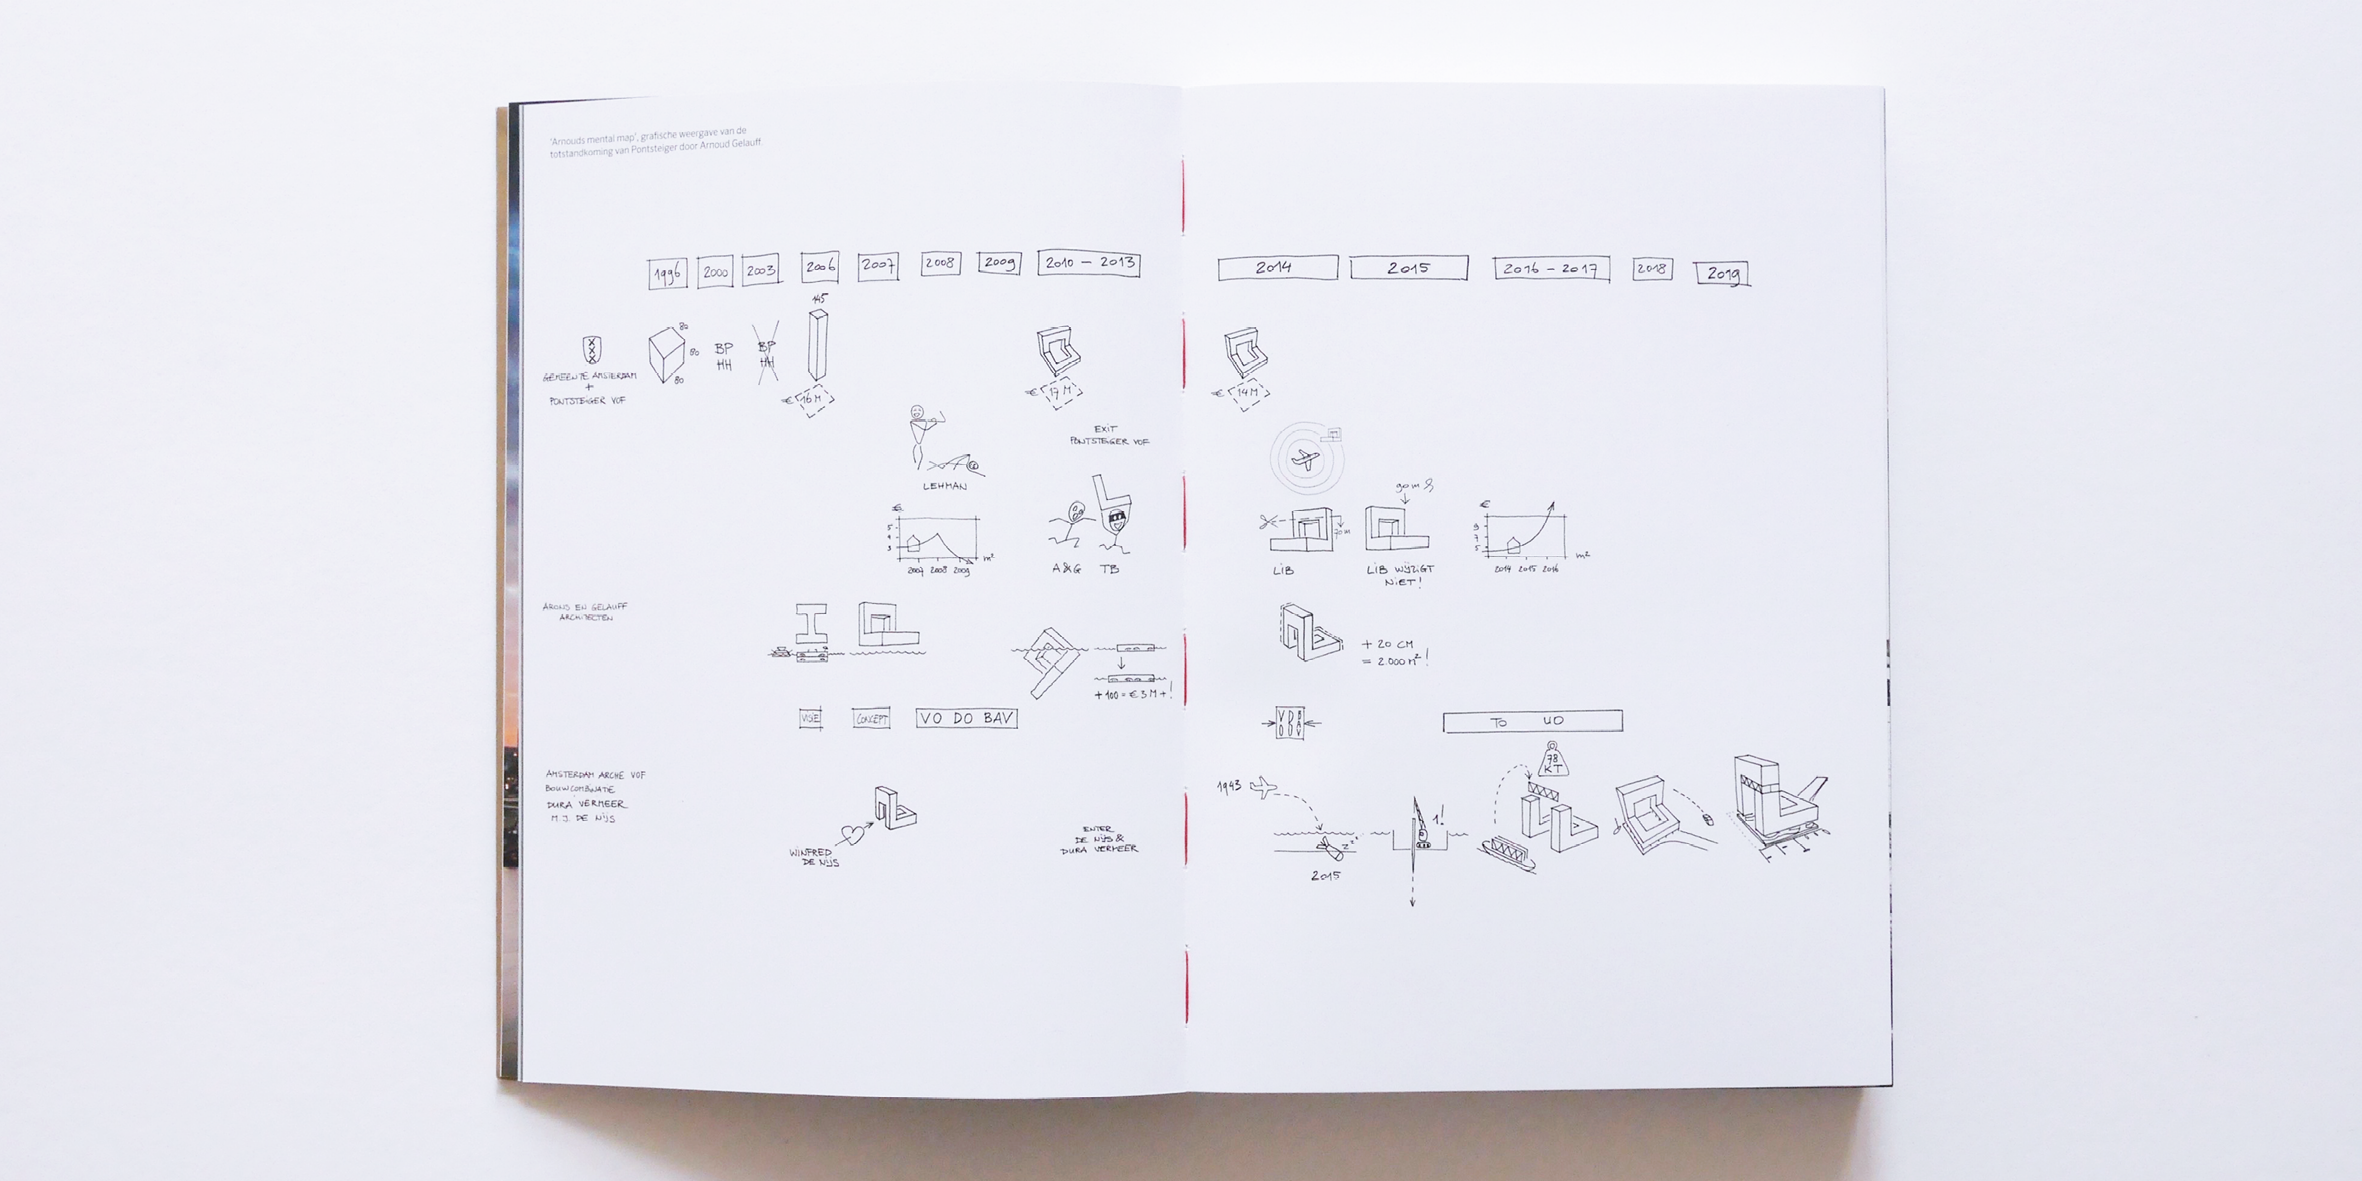 'Arnouds mental map', grafische weergave van de
totstandkoming van Pontsteiger door Arnoud Gelauff
1996 2000 2003 2006 2007 2008 2009 2010 – 2013 2014 2015 2016 – 2017 2018 2019
145
80
80
80
BP
HH
BP
HH
€ 16 M
€ 17 M
€ 14 M
GEMEENTE AMSTERDAM
+
PONTSTEIGER VOF
LEHMAN
EXIT
PONTSTEIGER VOF
€
5
4
3
m²
2007 2008 2009
A&G TB
70 m
LIB
90 m
LIB WIJZIGT
NIET!
€
9
7
5
m²
2014 2015 2016
ARONS EN GELAUFF
ARCHITECTEN
+ 100 = € 3 M + !
+ 20 CM
= 2.000 M²!
VISIE CONCEPT VO DO BAV
VO DO BAV
TO UO
AMSTERDAM ARCHE VOF
BOUWCOMBINATIE
DURA VERMEER
M.J. DE NIJS
WINFRED
DE NIJS
ENTER
DE NIJS &
DURA VERMEER
1943
zzz
2015
1!
78
KT